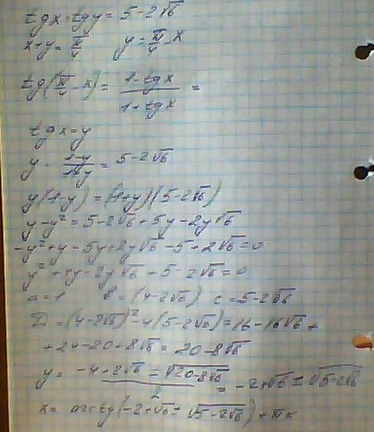 tgx·tgy = 5-2√6
x+y = π/4   y = π/4 - x
tg(π/4 - x) = (1-tgx)/(1+tgx) =
tgx = y
y · (1-y)/(1+y) = 5-2√6
y(1-y) = (1+y)(5-2√6)
y-y² = 5-2√6+5y-2y√6
-y²+y-5y+2y√6-5+2√6=0
y²+4y-2y√6+5-2√6=0
a=1   b=(4-2√6)   c=5-2√6
D=(4-2√6)²-4(5-2√6)=16-16√6+
+24-20+8√6=20-8√6
y = (-4+2√6±√20-8√6)/2 = -2+√6±√5-2√6
x = arctg(-2+√6±√5-2√6)+πk